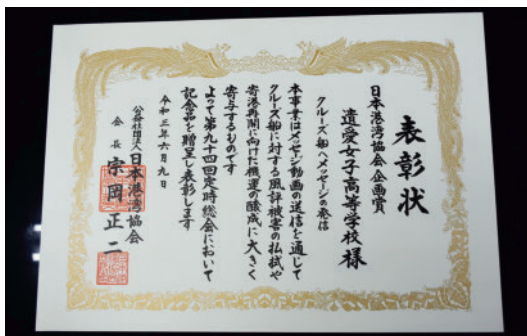 表彰状
日本港湾協会企画賞
遺愛女子高等学校様
クルーズ船へメッセージの発信
本事業はメッセージ動画の送信を通じて
クルーズ船に対する風評被害の払拭や
寄港再開に向けた機運の醸成に大きく
寄与するものです
よって第九十四回定時総会において
記念品を贈呈し表彰します
令和三年六月九日
公益社団法人日本港湾協会
会長 宗岡正二